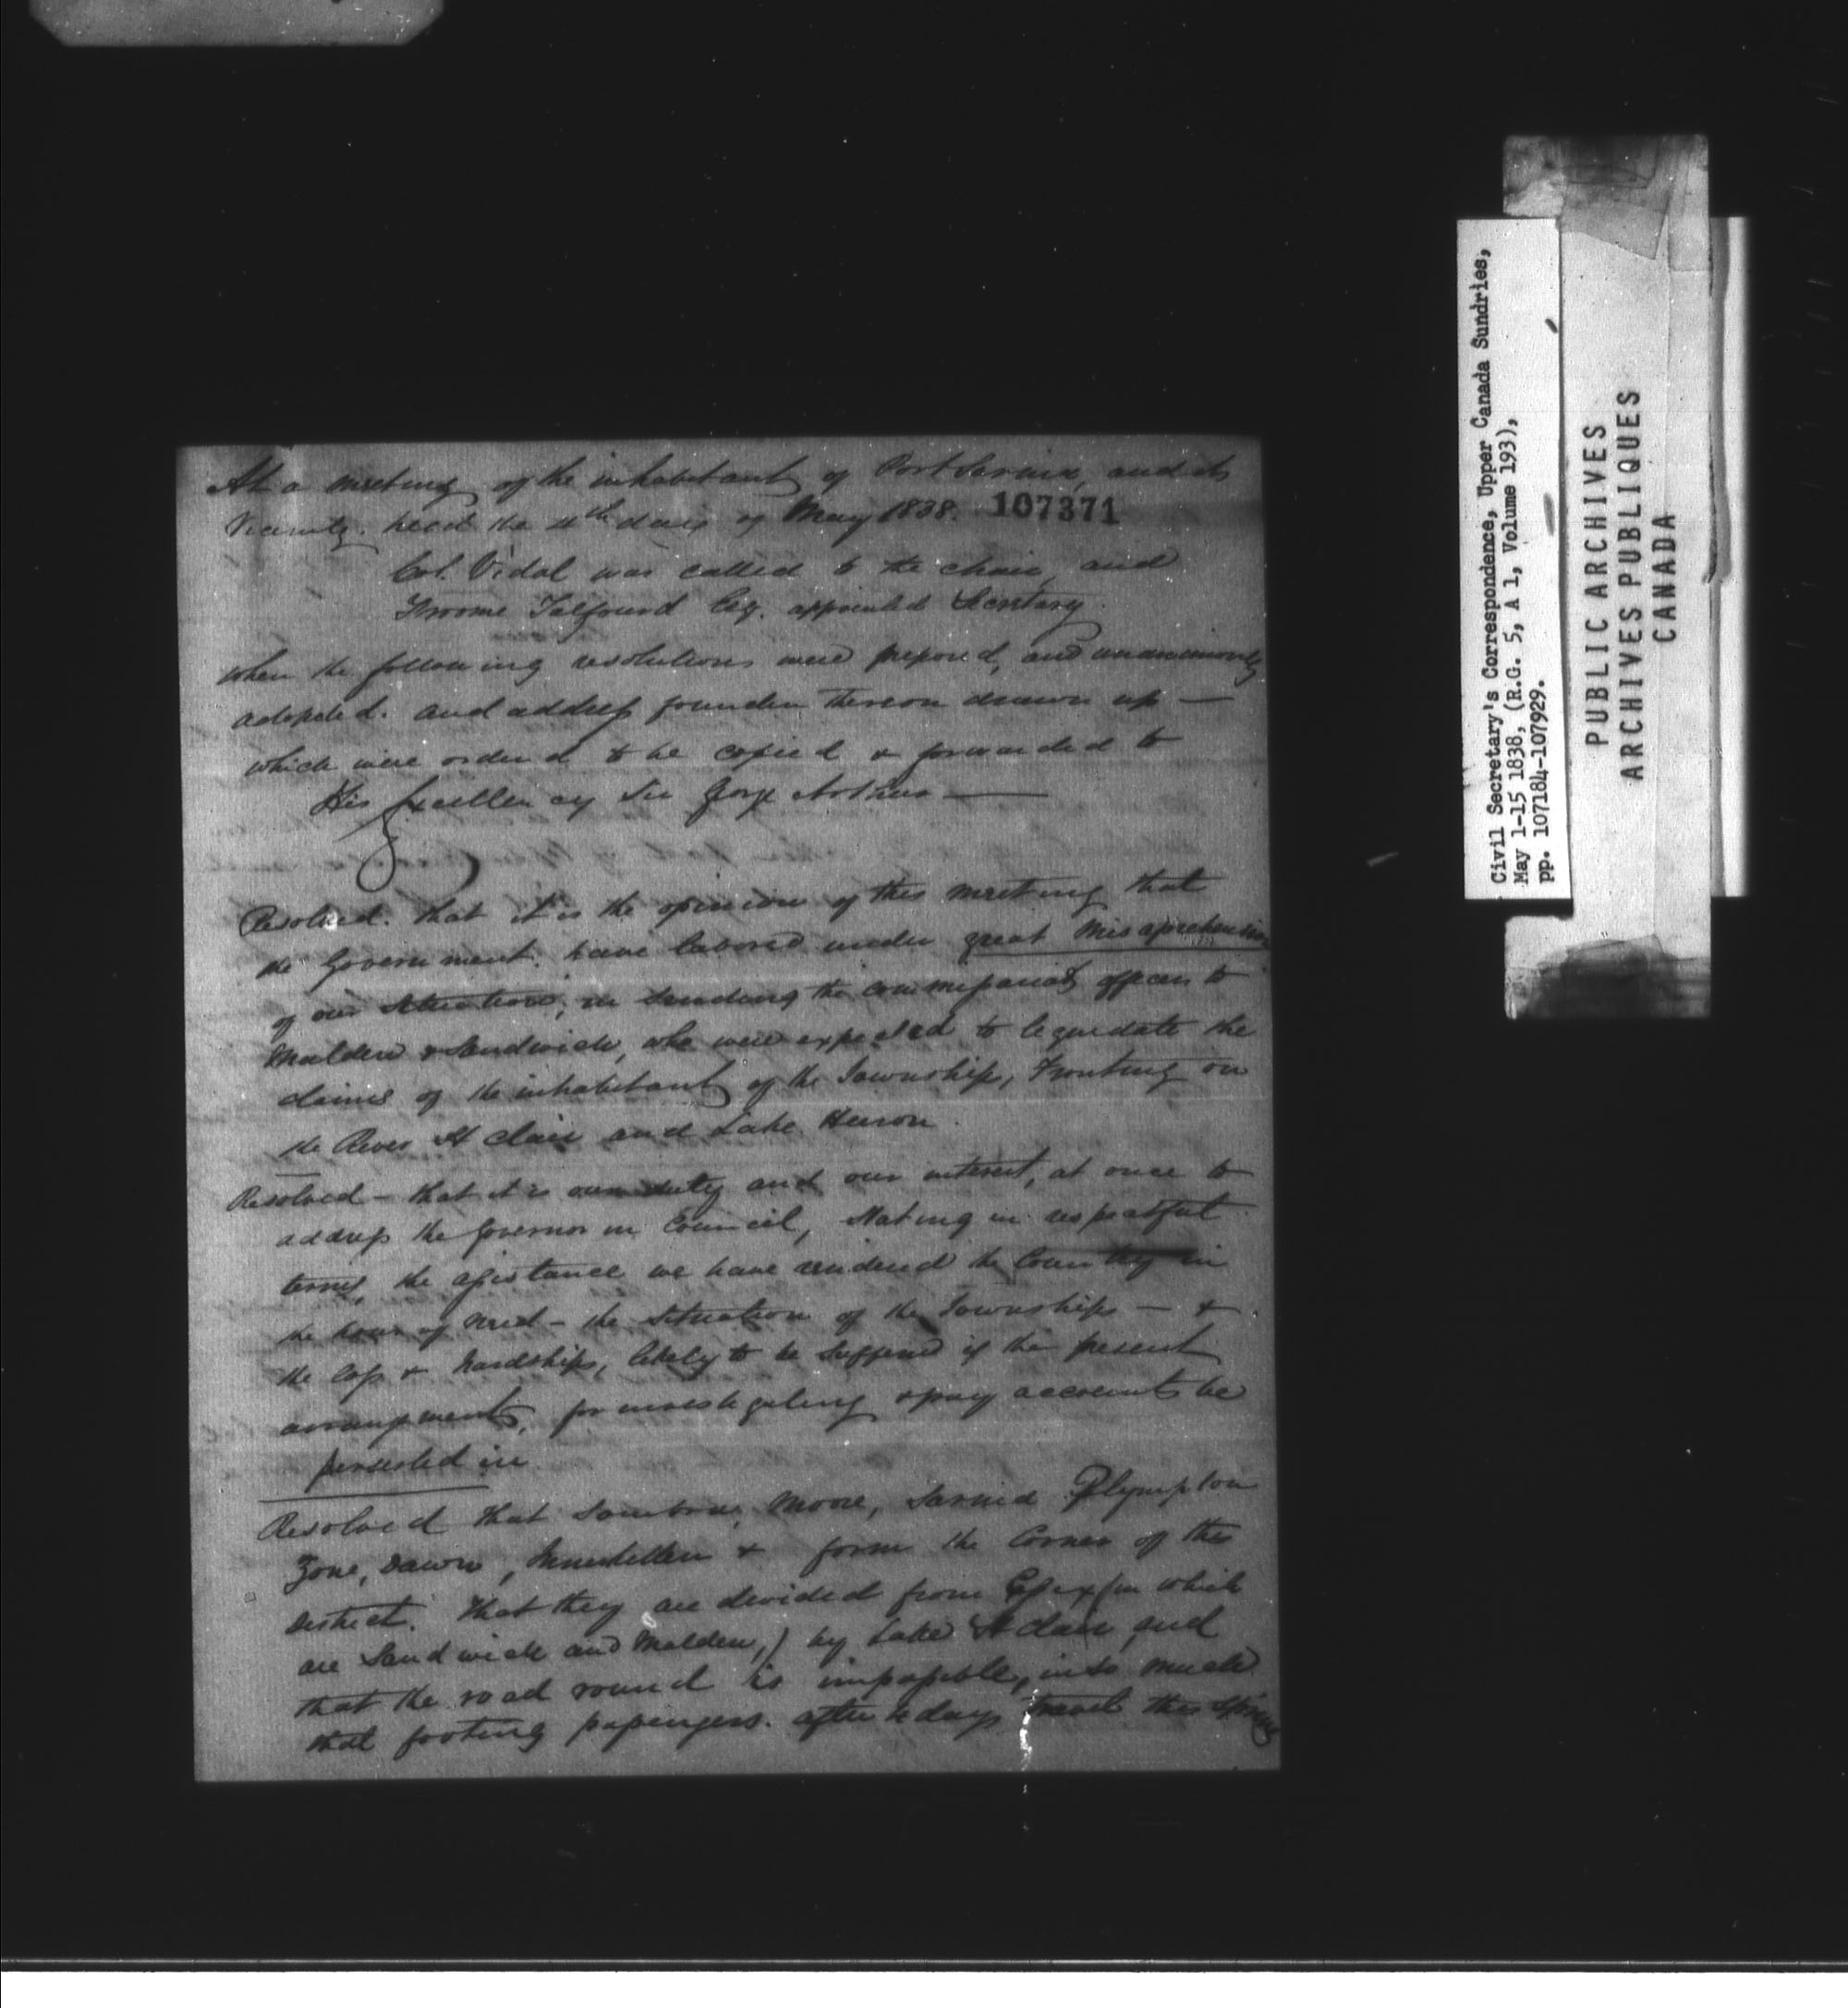 At a meeting of the inhabitants of Port Sarnia, and its
Vicinity. held the 4th day of May 1838. 107371
Col. Vidal was called to the chair, and
Froome Talfourd Esq. appointed Secretary.
When the following resolutions were prepared, and unanimously
adopted. and address founded thereon drawn up —
which were ordered to be copied & forwarded to
His Excellency Sir George Arthur —
Resolved. that it is the opinion of this meeting that
the Government. have labored under great Misapprehension
of our situation, in sending the commissariat officers to
Malden & Sandwich, who were expected to liquidate the
claims of the inhabitants of the Township, Fronting on
the River St Clair and Lake Huron.
Resolved - that it is our duty and our interest, at once to
address the Governor in Council, Stating in respectful
terms, the assistance we have rendered the Country in
the hour of need - the situation of the Townships — &
the loss & hardships, likely to be suffered if the present
arrangements, for investigating & pay accounts be
persisted in
Resolved that Sombra, Moore, Sarnia Plympton
Zone, Dawn, Enniskillen & form the Corner of the
District. that they are divided from Essex (in which
are Sandwich and Malden,) by Lake St Clair and
that the road round is impassible, in so much
that footing passengers. after days travel this Spring
Civil Secretary's Correspondence, Upper Canada Sundries,
May 1-15 1838, (R.G. 5, A 1, Volume 193),
pp. 107184-107929.
PUBLIC ARCHIVES
ARCHIVES PUBLIQUES
CANADA